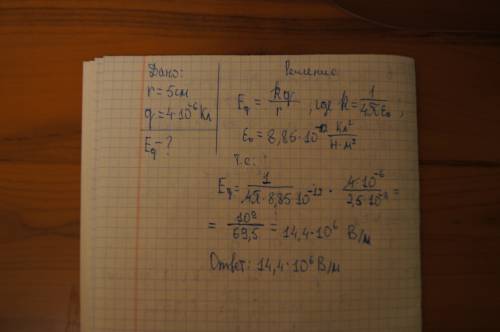 Дано:
r = 5 см
q = 4·10⁻⁶ Кл
E_q - ?
Решение
E_q = kq/r, где k = 1/4πε₀,
ε₀ = 8,85·10⁻¹² Кл²/Н·м²
т.е:
E_q = 1/4π·8,85·10⁻¹² · 4·10⁻⁶/25·10⁻⁴ =
= 10⁹/69,5 = 14,4·10⁶ В/м
Ответ: 14,4·10⁶ В/м